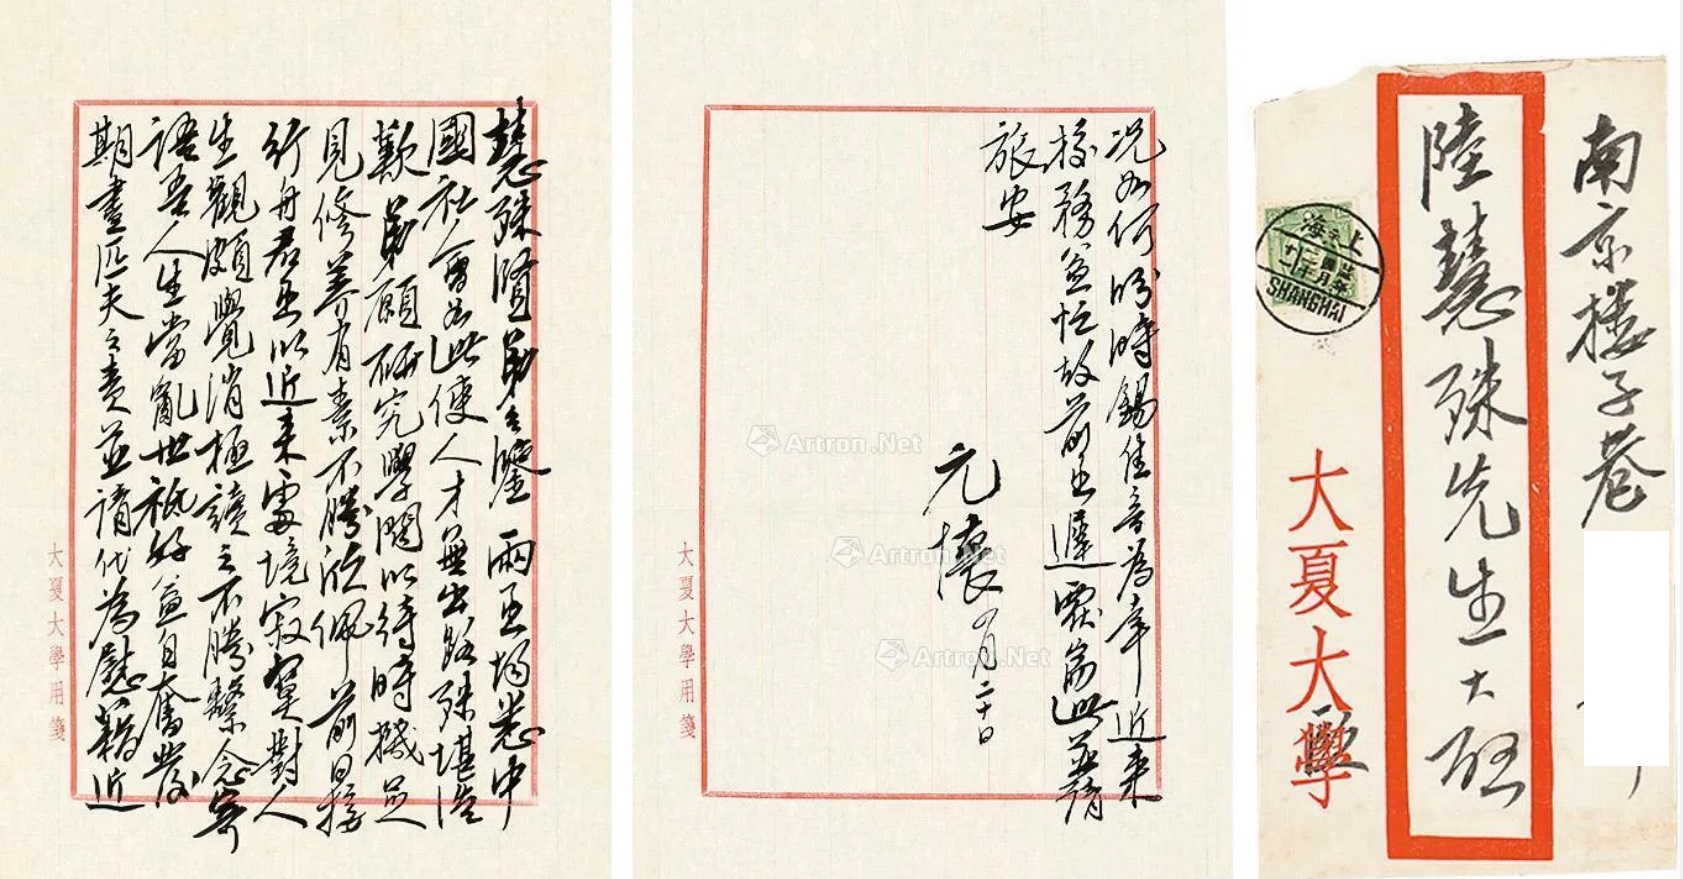 慧殊賢弟台鑒兩函均悉中
國社會如此使人才無出路殊堪浩
歎弟願研究學問以待時機足
見修養有素不勝欣佩前日接
行舟君函以近來處境寂寞對人
生觀頗覺消極讀之不勝繫念寄
語吾人生當亂世祇好益自奮發
期盡匹夫之責並請代為慰藉近
大夏大學用箋
况如何盼時錫佳音為幸近來
校務益忙故前函遲覆耑此並請
旅安
元懷 四月二十日
大夏大學用箋
Artron.Net
Artron.Net
Artron.Net
南京樓子巷
陸慧殊先生大啟
大夏大學
上海
SHANGHAI